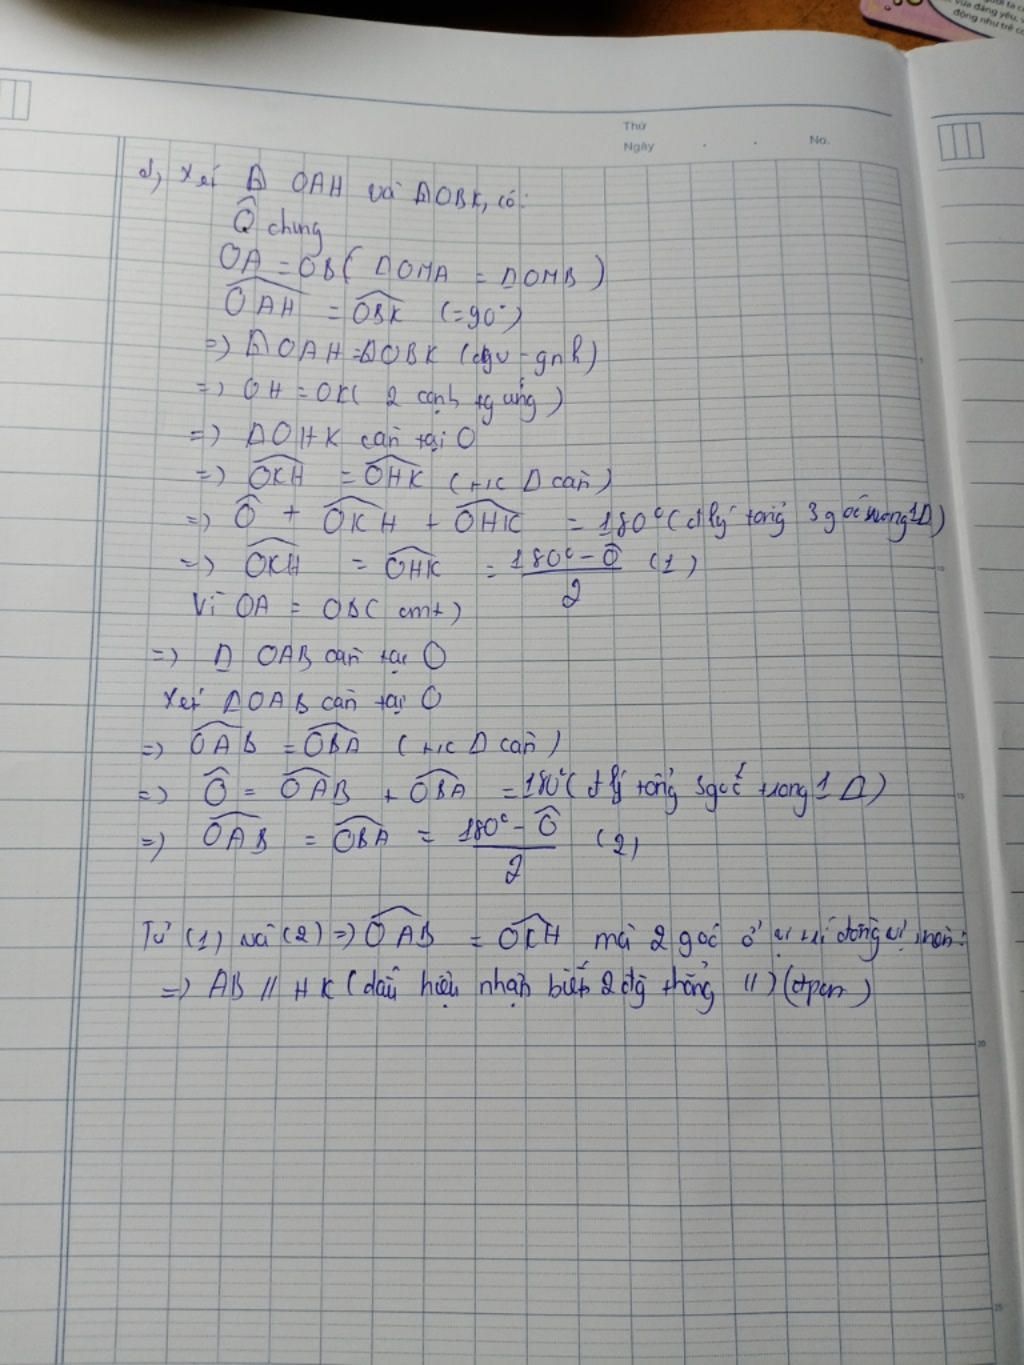 người ta c
vừa đáng yêu, v
động như trẻ co
Thứ
Ngày
No.
d, Xét Δ OAH và ΔOBK, có:
Ô chung
OA = OB ( ΔOMA = ΔOMB )
OAH = OBK (= 90°)
=> ΔOAH = ΔOBK (cgv - gnk)
=> OH = OK ( 2 cạnh tg ứng )
=> ΔOHK cân tại O
=> OKH = OHK ( t/c Δ cân )
=> Ô + OKH + OHK = 180° ( đ lý tổng 3 góc trong 1Δ )
=> OKH = OHK = (180° - Ô)/2 (1)
Vì OA = OB ( cmt )
=> Δ OAB cân tại O
Xét ΔOAB cân tại O
=> OAB = OBA ( t/c Δ cân )
=> Ô = OAB + OBA = 180° ( đ lý tổng 3 góc trong 1 Δ )
=> OAB = OBA = (180° - Ô)/2 (2)
Từ (1) và (2) => OAB = OKH mà 2 góc ở vị trí đồng vị
=> AB // HK ( dấu hiệu nhận biết 2 đg thẳng // ) (đpcm)
10
15
20
25